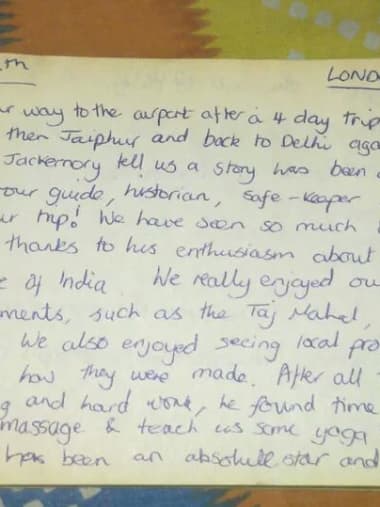 th LONDO
ur way to the airport after a 4 day trip
then Jaiphur and back to Delhi aga
Jackernory tell us a story has been
our guide, historian, safe-keeper
ur trip! We have seen so much
thanks to his enthusiasm about
e of India. We really enjoyed ou
ments, such as the Taj Mahal,
We also enjoyed seeing local pro
how they were made. After all
g and hard work, he found time
massage & teach us some yoga
has been an absolute star and